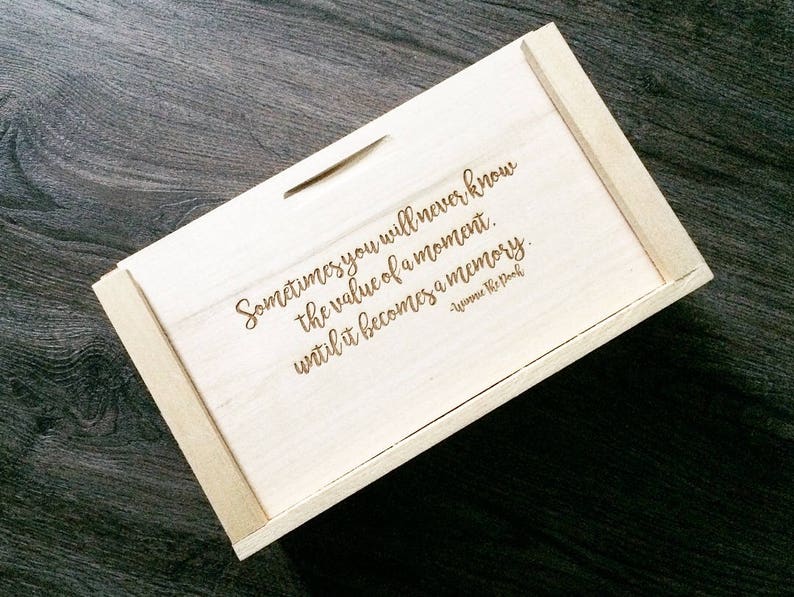 Sometimes you will never know
the value of a moment.
until it becomes a memory.
-Winnie The Pooh